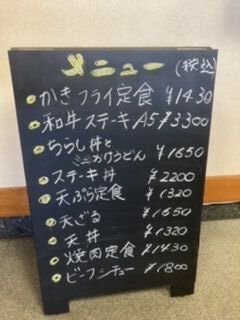 メニュー (税込)
かきフライ定食 ¥1430
和牛ステーキA5 ¥3300
ちらし丼と
ミニかけうどん ¥1650
ステーキ丼 ¥2200
天ぷら定食 ¥1320
天ざる ¥1650
天丼 ¥1320
焼肉定食 ¥1430
ビーフシチュー ¥1800